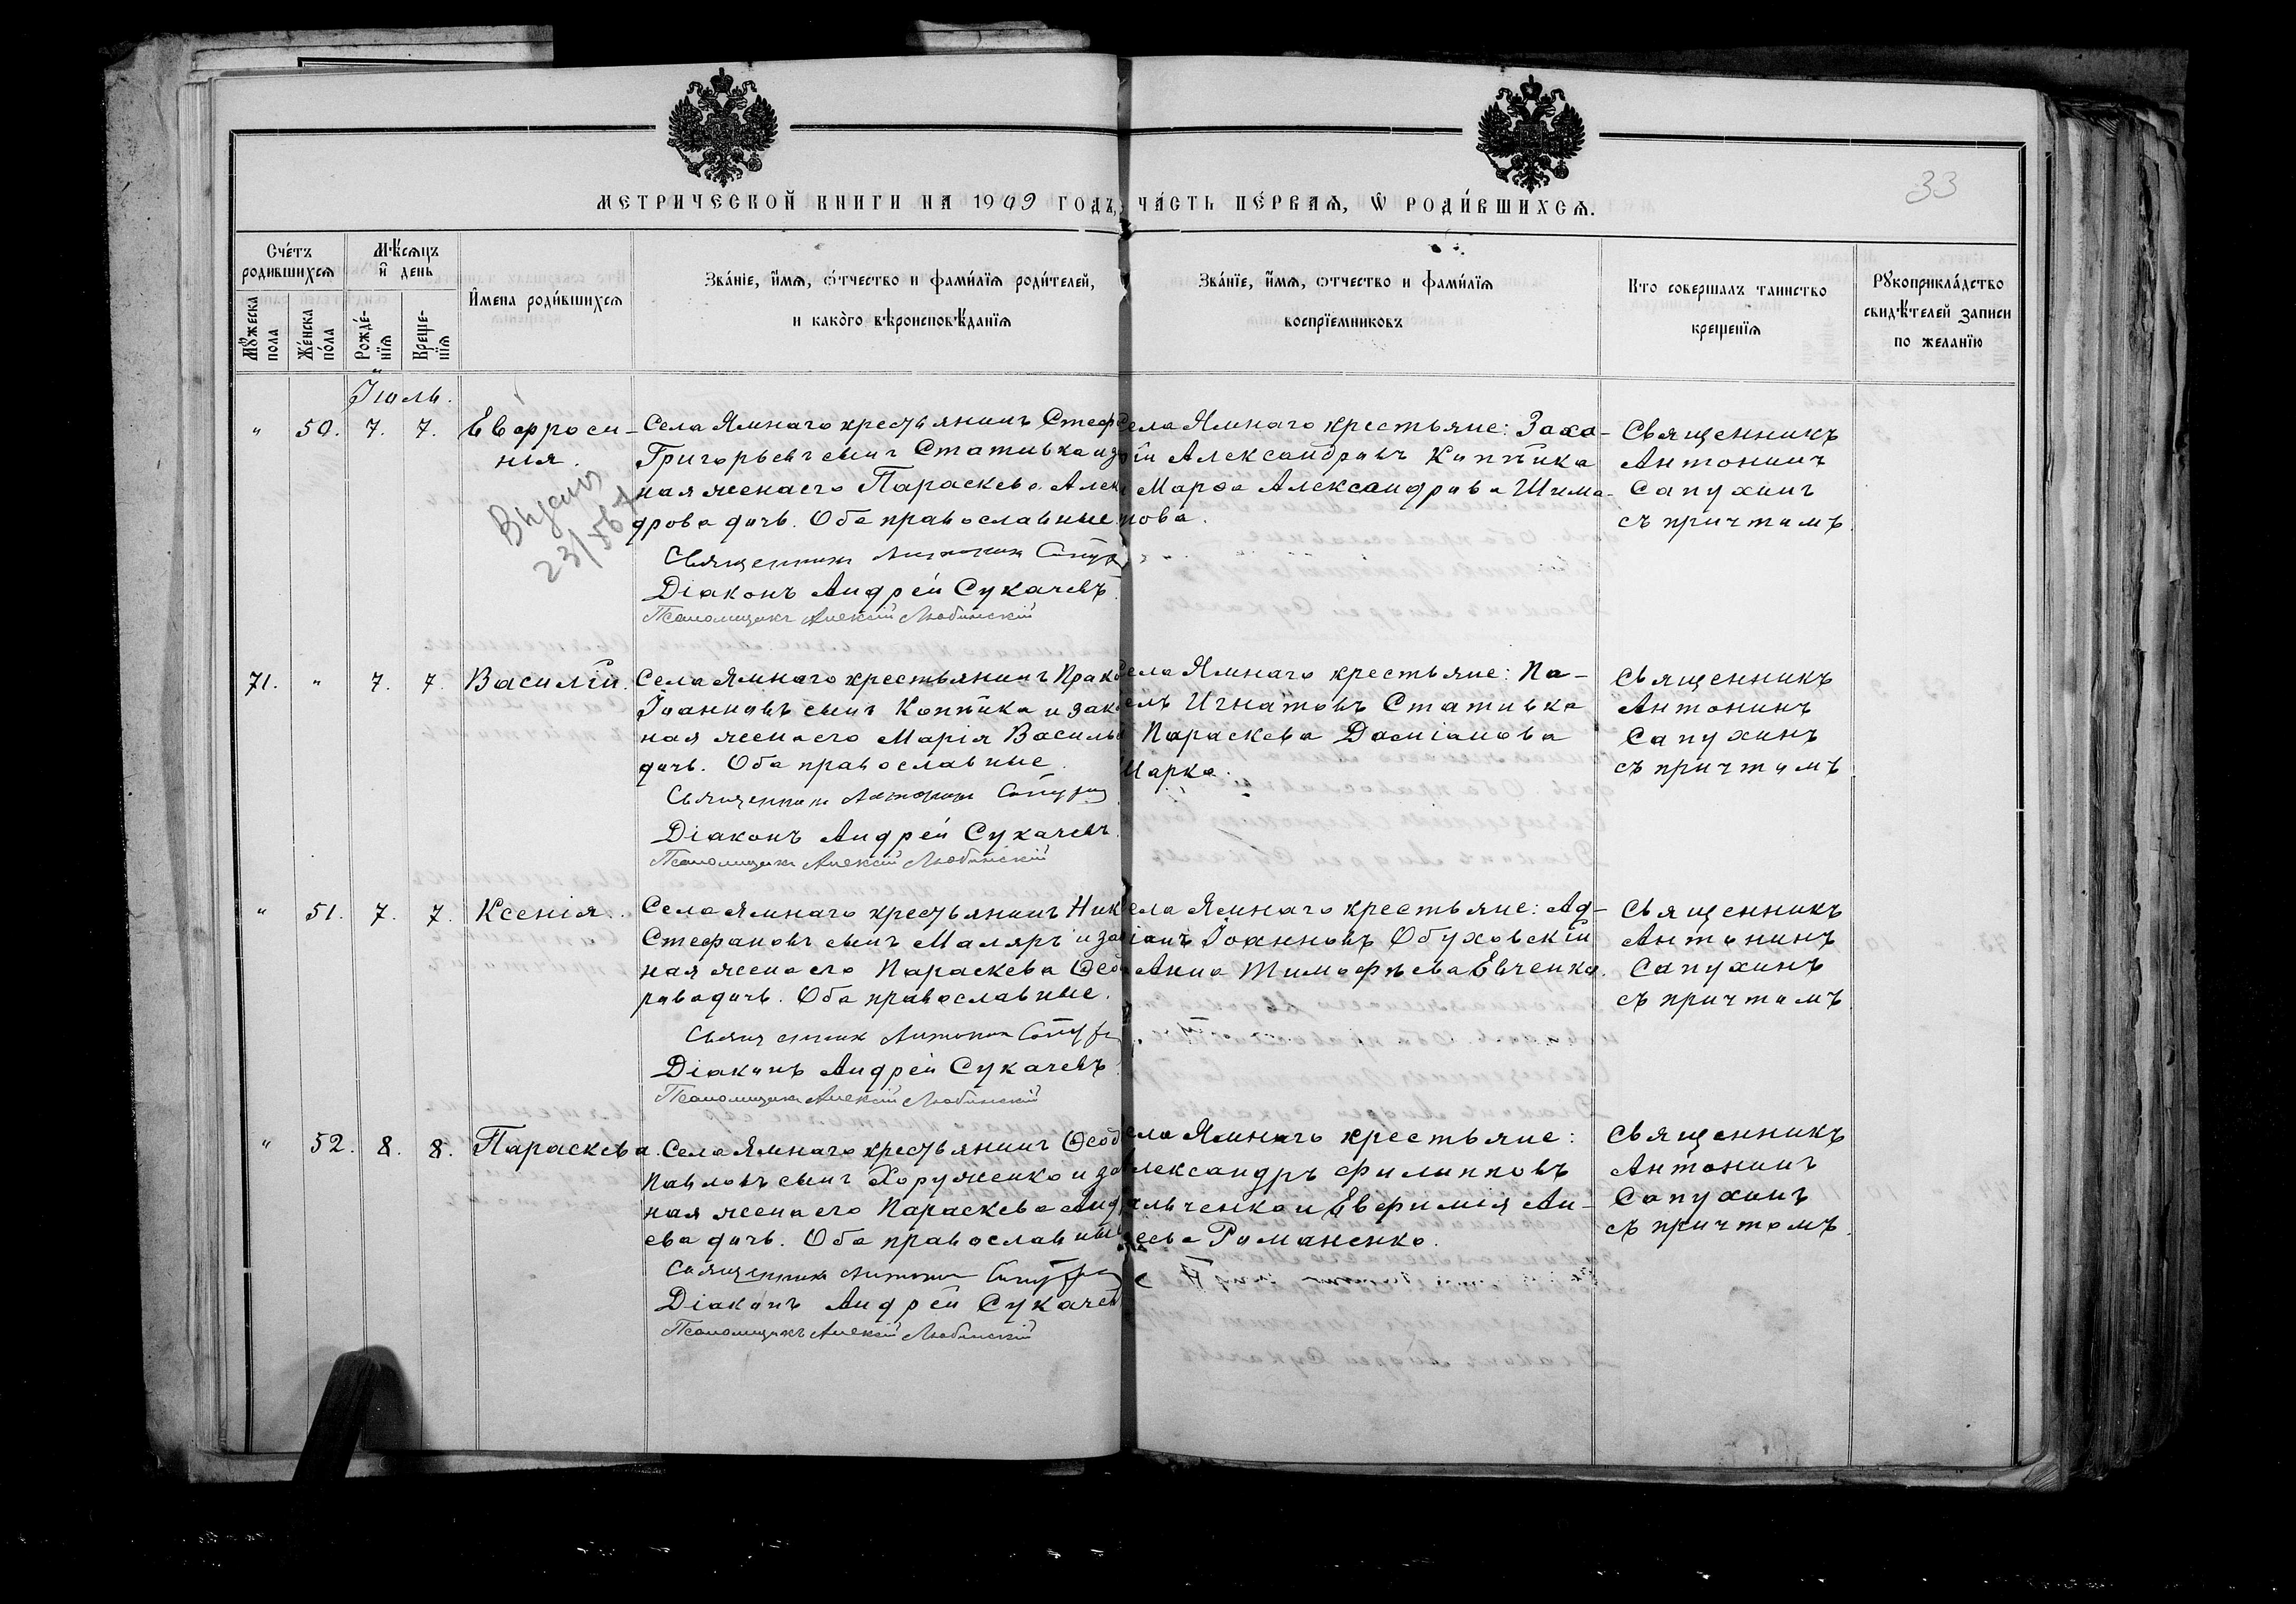 33
МЕТРИЧЕСКОЙ КНИГИ НА 1909 ГОДЪ, ЧА́СТЬ ПЕ́РВАѦ, Ѡ РОДИ́ВШИХСѦ.
Сче́тъ родившихсѧ
Мѣ́сѧцъ и҆ день
И҆мена роди́вшихсѧ
Зва́нїе, и҆́мѧ, ѻ҆́тчество и фами́лїѧ роди́телей,
и како́гѡ вѣроисповѣ́данїѧ
Зва́нїе, и҆́мѧ, ѻтчество и фами́лїѧ
воспрїемниковъ
Кто совершалъ таинство
крещенїѧ
Рꙋкоприкла́дство
свидѣ́телей записи
по желанїю
Мꙋ́жеска пола
Же́нска по́ла
Рожде́-
нїѧ
Креще-
нїѧ
Іюль.
" 50. 7. 7. Евфроси-
нія.
Села Ямнаго крестьянинъ Стеф
Григорьевъ сынъ Стативка и за
ная жена его Параскева Алек
дрова дочь. Оба православные.
Священникъ Антонин Сапух
Діаконъ Андрей Сукачевъ.
Псаломщикъ Алексій Любинскій
ела Ямнаго крестьяне: Заха-
ій Александровъ Коппійка
Марѳа Александрова Шима-
нова.
Священникъ
Антонинъ
Сапухинъ
съ причтомъ.
23/
71. " 7. 7. Василій.
Села Ямнаго крестьянинъ Прок
Іоанновъ сынъ Коппійка и зак
ная жена его Марія Василь
дочь. Оба православные.
Священник Антонин Сапухин
Діаконъ Андрей Сукачевъ.
Псаломщикъ Алексій Любинскій
ела Ямнаго крестьяне: Па-
елъ Игнатовъ Стативка
Параскева Даміанова
Марка.
Священникъ
Антонинъ
Сапухинъ
съ причтомъ
" 51. 7. 7. Ксенія.
Села Ямнаго крестьянинъ Ник
Стефановъ сынъ Маляръ и зак
ная жена его Параскева Ѳеод
рова дочь. Оба православные.
Священник Антонин Сапух
Діаконъ Андрей Сукачевъ.
Псаломщикъ Алексій Любинскій
ела Ямнаго крестьяне: Ад-
іанъ Іоанновъ Обуховскій
Анна Тимофѣева Евченко.
Священникъ
Антонинъ
Сапухинъ
съ причтомъ
" 52. 8. 8. Параскева.
Села Ямнаго крестьянинъ Ѳеод
Павловъ сынъ Хоруженко и за
ная жена его Параскева Анд
ева дочь. Оба православны
Священник Антонин Сапух
Діаконъ Андрей Сукачев
Псаломщикъ Алексій Любинскій
ела Ямнаго крестьяне:
лександръ Филипповъ
альченко и Евфимія Ан-
еева Романенко.
Священникъ
Антонинъ
Сапухинъ
съ причтомъ.